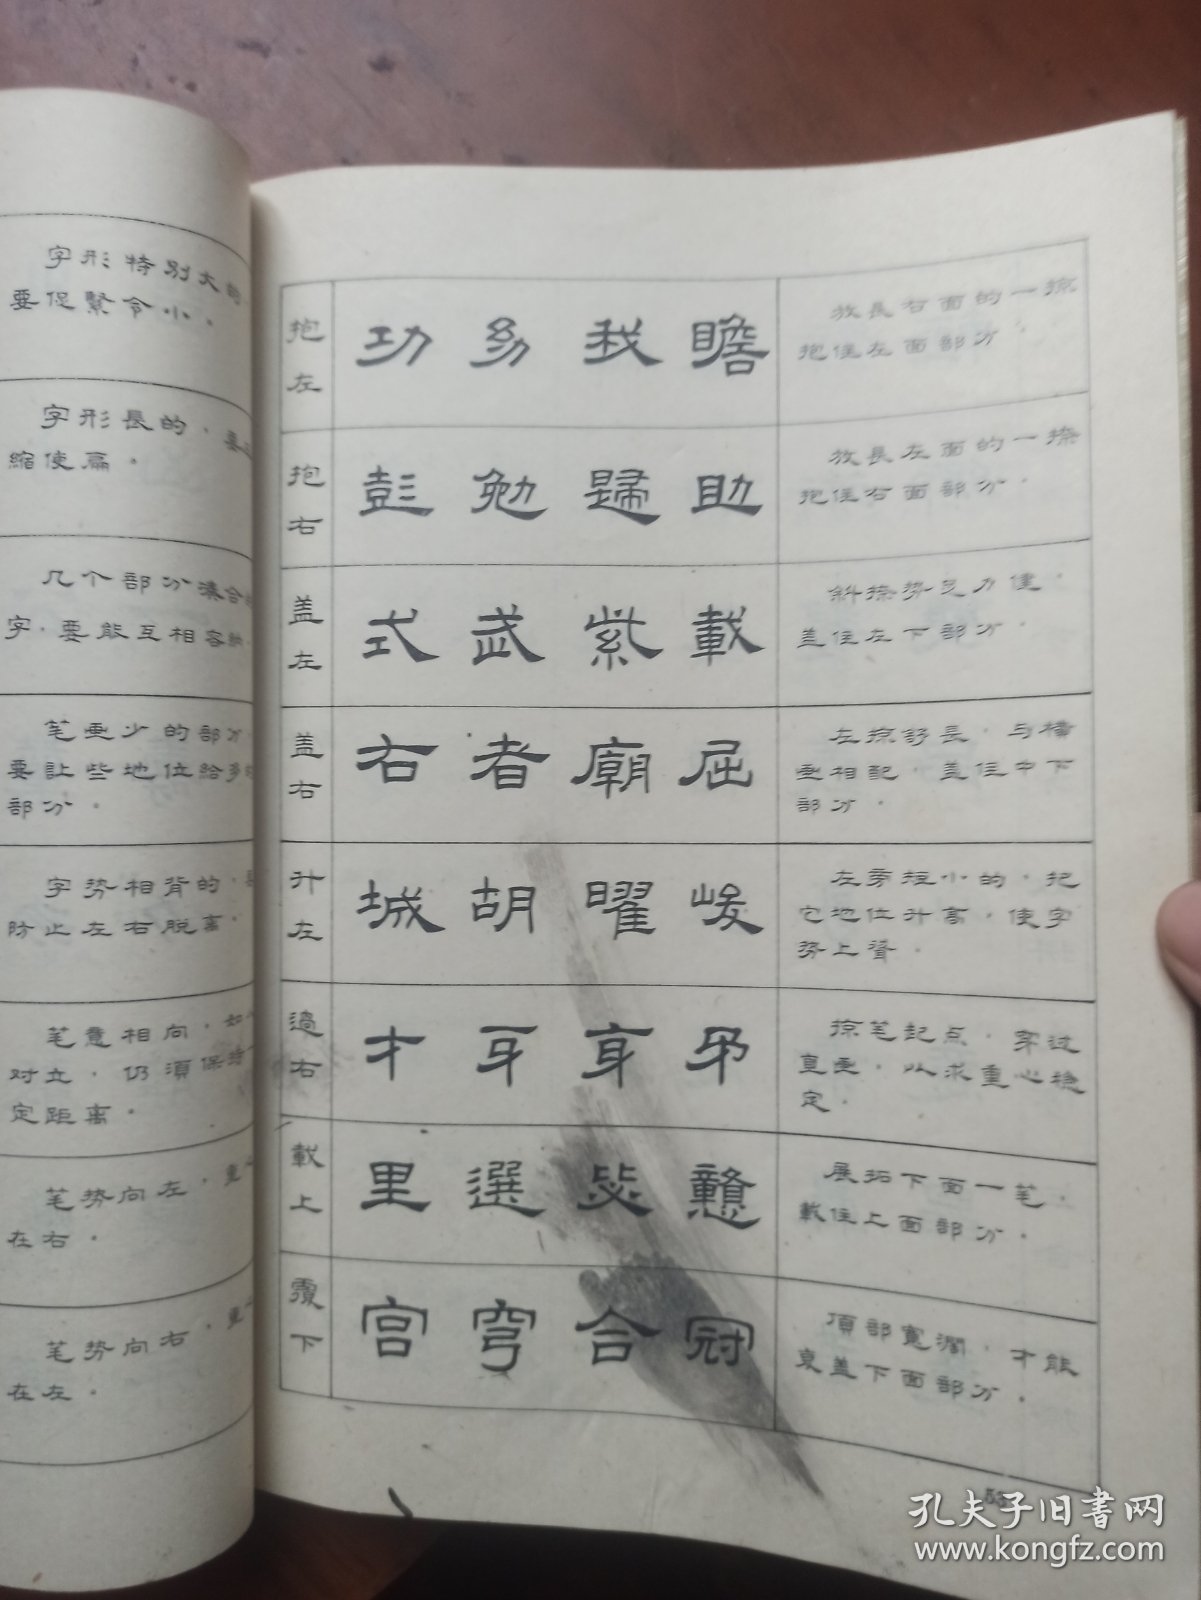 字形特别大的
要促緊令小．
字形長的，要
縮使扁．
几个部分湊合
字，要能互相容納．
笔画少的部分，
要讓些地位給多的
部分．
字势相背的，
防止左右脱离．
笔意相向，如
对立，仍須保持
定距离．
笔势向左，重心
在右．
笔势向右，重心
在左．
抱左
功 幼 我 瞻
放長右面的一捺
抱住左面部分．
抱右
彭 勉 歸 助
放長左面的一捺
抱住右面部分．
盖左
式 武 紫 載
斜捺势乞力健，
盖住左下部分．
盖右
右 者 廟 屈
左掠舒長，与橫
画相配，盖住中下
部分．
升左
城 胡 曜 峻
左旁短小的，把
它地位升高，使字
势上聳．
過右
才 牙
掠笔起点，穿过
直画，以求重心稳
定．
載上
里 選
展拓下面一笔，
載住上面部分．
覆下
宫 穹 合 冠
頂部寬濶，才能
裒盖下面部分．
53
孔夫子旧書网
www.kongfz.com